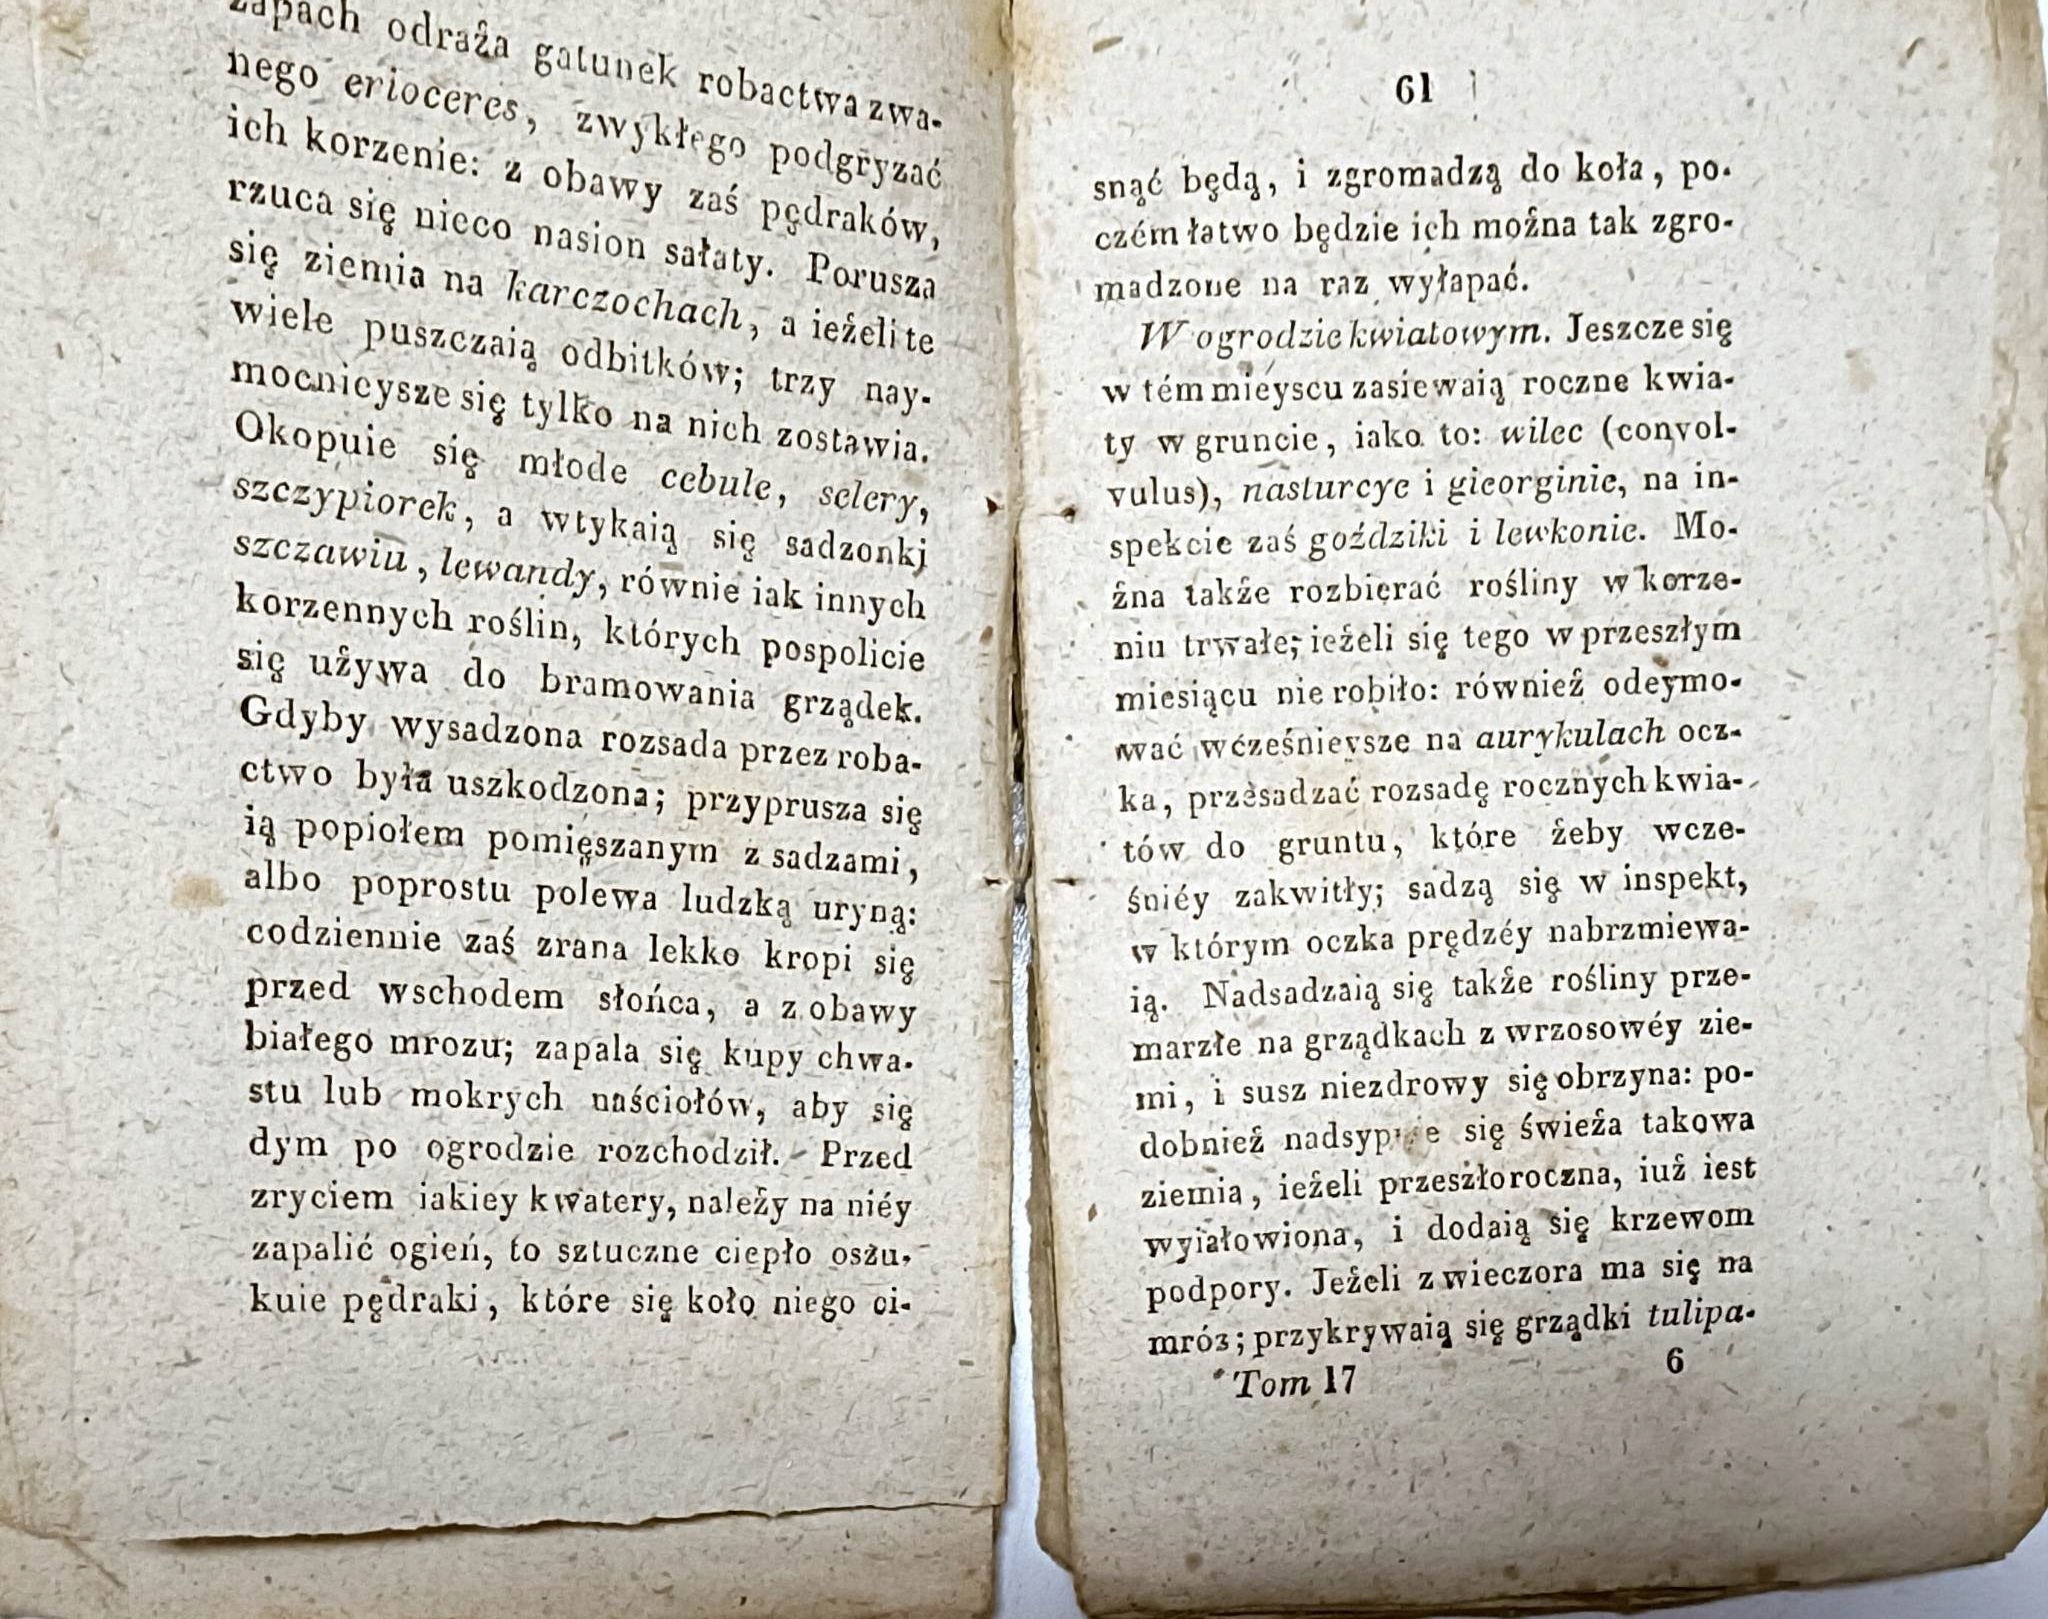 zapach odraża gatunek robactwa zwa-
nego erioceres, zwykłego podgryzać
ich korzenie: z obawy zaś pędraków,
rzuca się nieco nasion sałaty. Porusza
się ziemia na karczochach, a ieżeli te
wiele puszczaią odbitków; trzy nay-
mocnieysze się tylko na nich zostawia.
Okopuie się młode cebule, selery,
szczypiorek, a wtykaią się sadzonki
szczawiu, lewandy, równie iak innych
korzennych roślin, których pospolicie
się używa do bramowania grządek.
Gdyby wysadzona rozsada przez roba-
ctwo była uszkodzona; przyprusza się
ią popiołem pomięszanym z sadzami,
albo poprostu polewa ludzką uryną:
codziennie zaś zrana lekko kropi się
przed wschodem słońca, a z obawy
białego mrozu; zapala się kupy chwa-
stu lub mokrych naściołów, aby się
dym po ogrodzie rozchodził. Przed
zryciem iakiey kwatery, należy na niéy
zapalić ogień, to sztuczne ciepło oszu-
kuie pędraki, które się koło niego ci-
61
snąć będą, i zgromadzą do koła, po-
czém łatwo będzie ich można tak zgro-
madzone na raz wyłapać.
W ogrodzie kwiatowym. Jeszcze się
w tém mieyscu zasiewaią roczne kwia-
ty w gruncie, iako to: wilec (convol-
vulus), nasturcye i gieorginie, na in-
spekcie zaś goździki i lewkonie. Mo-
żna także rozbierać rośliny w korze-
niu trwałe; ieżeli się tego w przeszłym
miesiącu nie robiło: również odeymo-
wać wcześnieysze na aurykulach ocz-
ka, przesadzać rozsadę rocznych kwia-
tów do gruntu, które żeby wcze-
śniéy zakwitły; sadzą się w inspekt,
w którym oczka prędzéy nabrzmiewa-
ią. Nadsadzaią się także rośliny prze-
marzłe na grządkach z wrzosowéy zie-
mi, i susz niezdrowy się obrzyna: po-
dobnież nadsypuie się świeża takowa
ziemia, ieżeli przeszłoroczna, iuż iest
wyiałowiona, i dodaią się krzewom
podpory. Jeżeli z wieczora ma się na
mróz; przykrywaią się grządki tulipa-
Tom 17 6